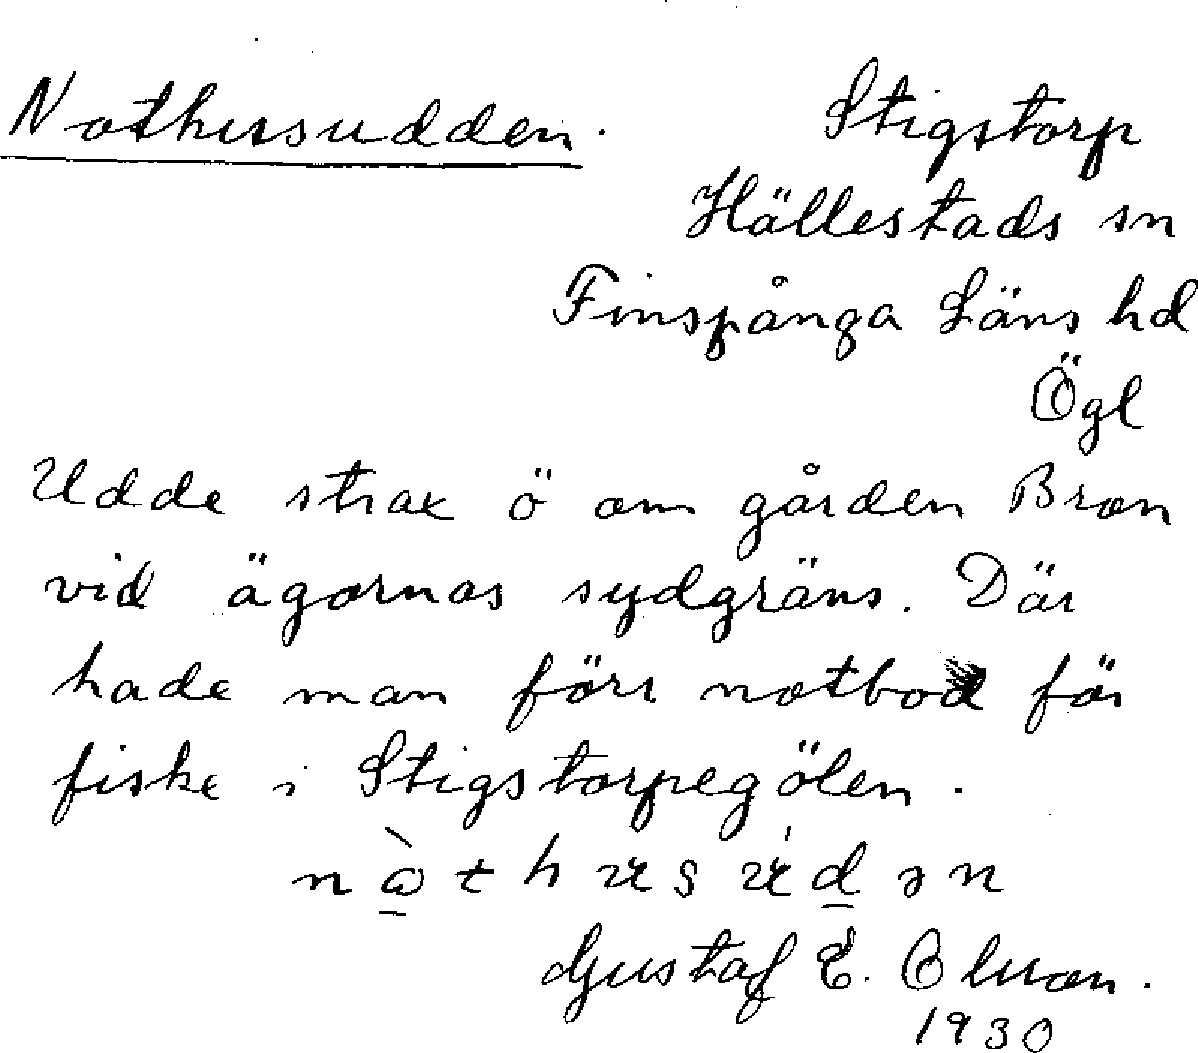 Nothussudden. Stigstorp
Hällestads sn
Finspånga Läns hd
Ögl
Udde strax ö om gården Bron
vid ägornas sydgräns. Där
hade man förr notbod för
fiske i Stigstorpegölen.
Gustaf E.
1930